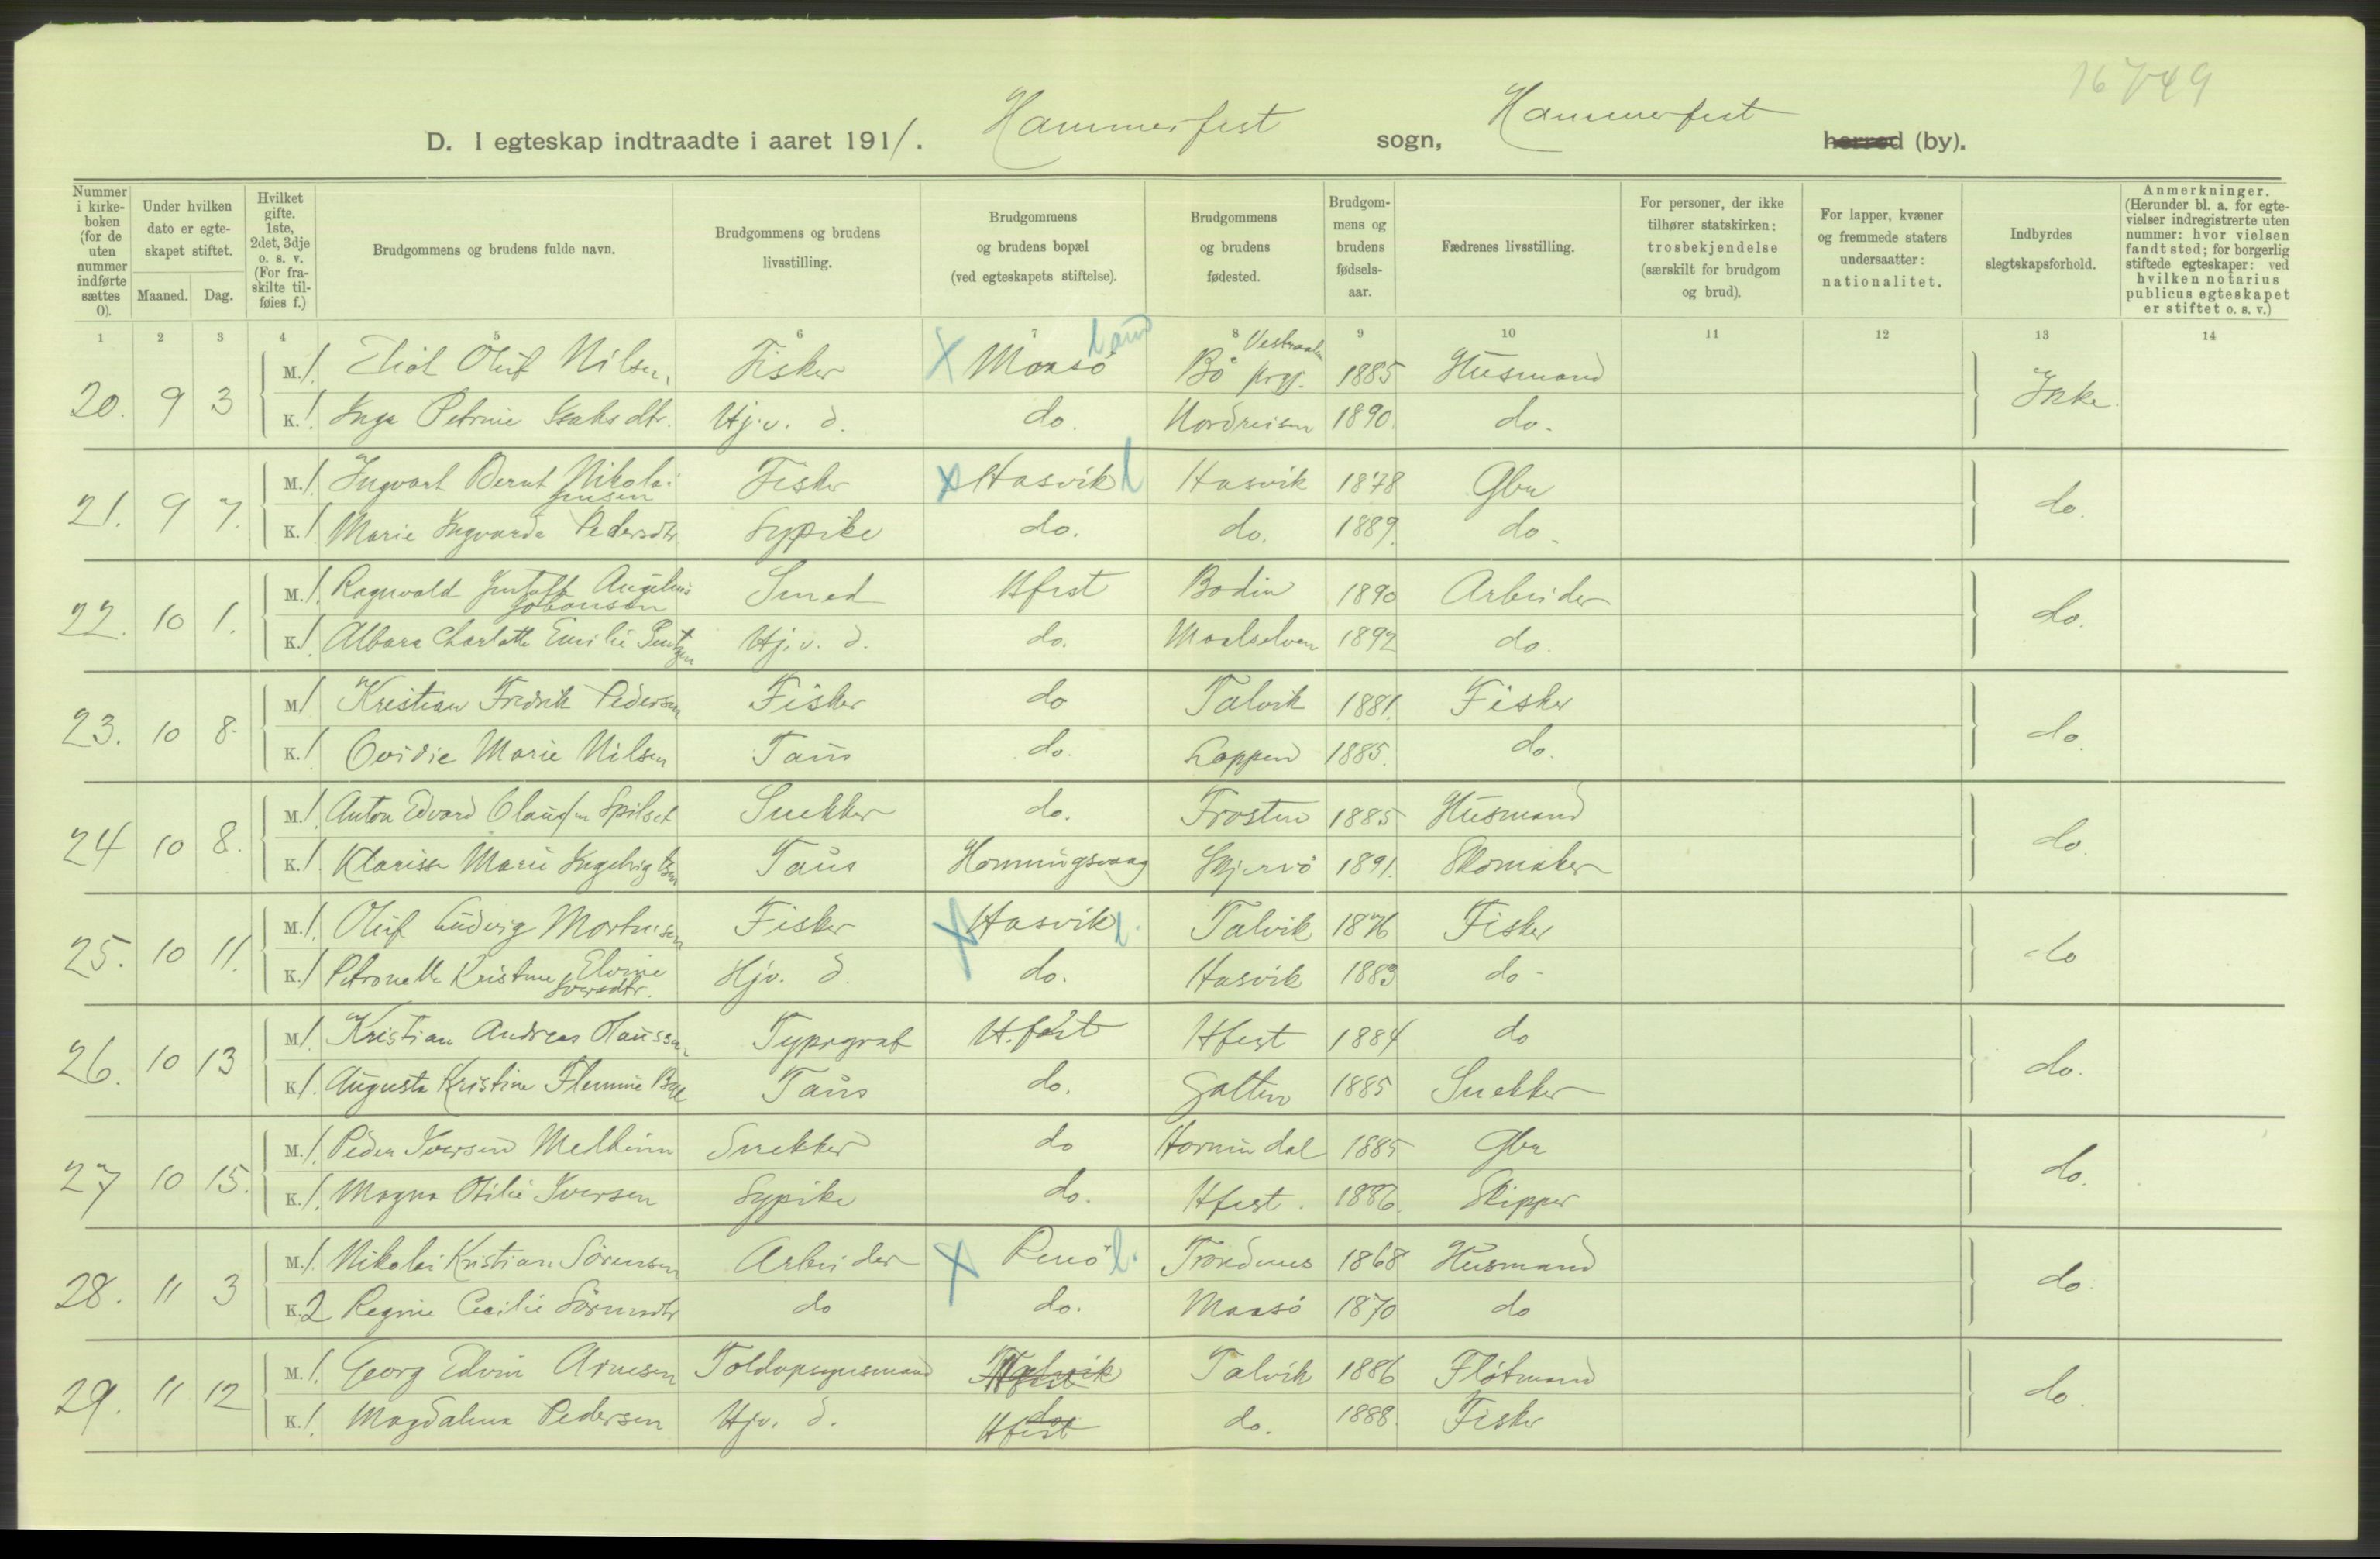 16749
D. I egteskap indtraadte i aaret 1911. Hammerfest sogn, Hammerfest herred (by).
Nummer i kirkeboken (for de uten nummer indførte sættes 0).
Under hvilken dato er egteskapet stiftet.
Maaned. Dag.
Hvilket gifte. 1ste, 2det, 3dje o. s. v. (For fraskilte tilføies f.)
Brudgommens og brudens fulde navn.
Brudgommens og brudens livsstilling.
Brudgommens og brudens bopæl (ved egteskapets stiftelse).
Brudgommens og brudens fødested.
Brudgommens og brudens fødselsaar.
Fædrenes livsstilling.
For personer, der ikke tilhører statskirken: trosbekjendelse (særskilt for brudgom og brud).
For lapper, kvæner og fremmede staters undersaatter: nationalitet.
Indbyrdes slegtskapsforhold.
Anmerkninger. (Herunder bl. a. for egtevielser indregistrerte uten nummer: hvor vielsen fandt sted; for borgerlig stiftede egteskaper: ved hvilken notarius publicus egteskapet er stiftet o. s. v.)
1 2 3 4 5 6 7 8 9 10 11 12 13 14
20. 9 3 M. 1. Oluf Nilsen Fisker X Maasö Land Bö prgj. Vesteraalen 1885 Husmand Ikke.
K. 1. Inga Petrine Isaksdtr. Hj. v. d. do. Nordreisen 1890. do.
21. 9 7. M. 1. Ingvart Bernt Nikolai Jensen Fisker X Hasvik L Hasvik 1878 Gbr do.
K. 1. Marie Ingvarda Pedersdtr Sypike do. do. 1889. do.
22. 10 1. M. 1. Ragnvald Gustaff Angelius Johansen Smed Hfest Bodin 1890 Arbeider do.
K. 1. Albara Charlotte Emilie Hj. v. d. do. Maalselven 1892 do.
23. 10 8. M. 1. Kristian Fredrik Pedersen Fisker do Talvik 1881. Fisker do.
K. 1. Ovidie Marie Nilsen Taus do. Loppen 1885. do.
24 10 8. M. 1. Anton Edvard Olausen Spilset Snekker do. Frosten 1885 Husmand do.
K. 1. Klarissa Marie Ingebrig Taus Honningsvaag Skjervö 1891. Skomaker
25. 10 11. M. 1. Oluf Ludvig Mortensen Fisker X Hasvik L. Talvik 1876 Fisker do
K. 1. Petronelle Kristine Elvine Iversdtr. Hjv. d. do. Hasvik 1883 do
26. 10 13 M. 1. Kristian Andreas Olaussen Typograf H.fest Hfest 1884 do do.
K. 1. Augusta Kristine Flemine Taus do. Galten 1885 Snekker
27 10 15. M. 1. Peder Iversen Melheim Snekker do Hornindal 1885 Gbr do.
K. 1. Magna Otilie Iversen Sypike do. Hfest. 1886. Skipper
28. 11 3 M. 1. Nikolai Kristian Sörensen Arbeider X L. Trondenes 1868 Husmand do.
K. 2 Regine Cecilie Sörensdtr do do. Maasö 1870 do
29. 11 12 M. 1. Georg Edvin Arnesen Toldopsynsmand Talvik Talvik 1886 Flötmand do.
K. 1. Magdalena Pedersen Hjv. d. Hfest do. 1888. Fisker